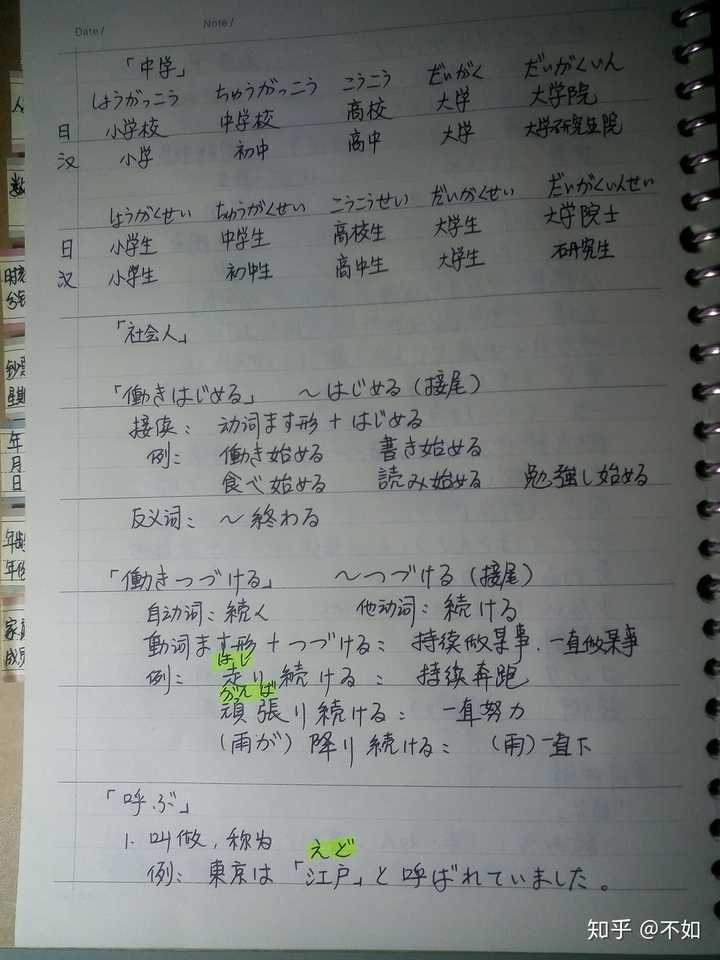 Date /    Note /
「中学」
しょうがっこう ちゅうがっこう こうこう だいがく だいがくいん
日 小学校 中学校 高校 大学 大学院
汉 小学 初中 高中 大学 大学研究生院
しょうがくせい ちゅうがくせい こうこうせい だいがくせい だいがくいんせい
日 小学生 中学生 高校生 大学生 大学院士
汉 小学生 初中生 高中生 大学生 研究生
「社会人」
「働きはじめる」 ～はじめる(接尾)
接续： 动词ます形 + はじめる
例： 働き始める 書き始める
食べ始める 読み始める 勉強し始める
反义词： ～終わる
「働きつづける」 ～つづける(接尾)
自动词：続く 他动词：続ける
動词ます形 + つづける： 持续做某事、一直做某事
はし
例： 走り続ける： 持续奔跑
がんば
頑張り続ける： 一直努力
(雨が) 降り続ける： (雨)一直下
「呼ぶ」
1. 叫做，称为
えど
例： 東京は「江戸」と呼ばれていました。
人
数
时刻
分钟
钞票
星期
年
月
日
年龄
年份
家庭
成员
知乎 @不如